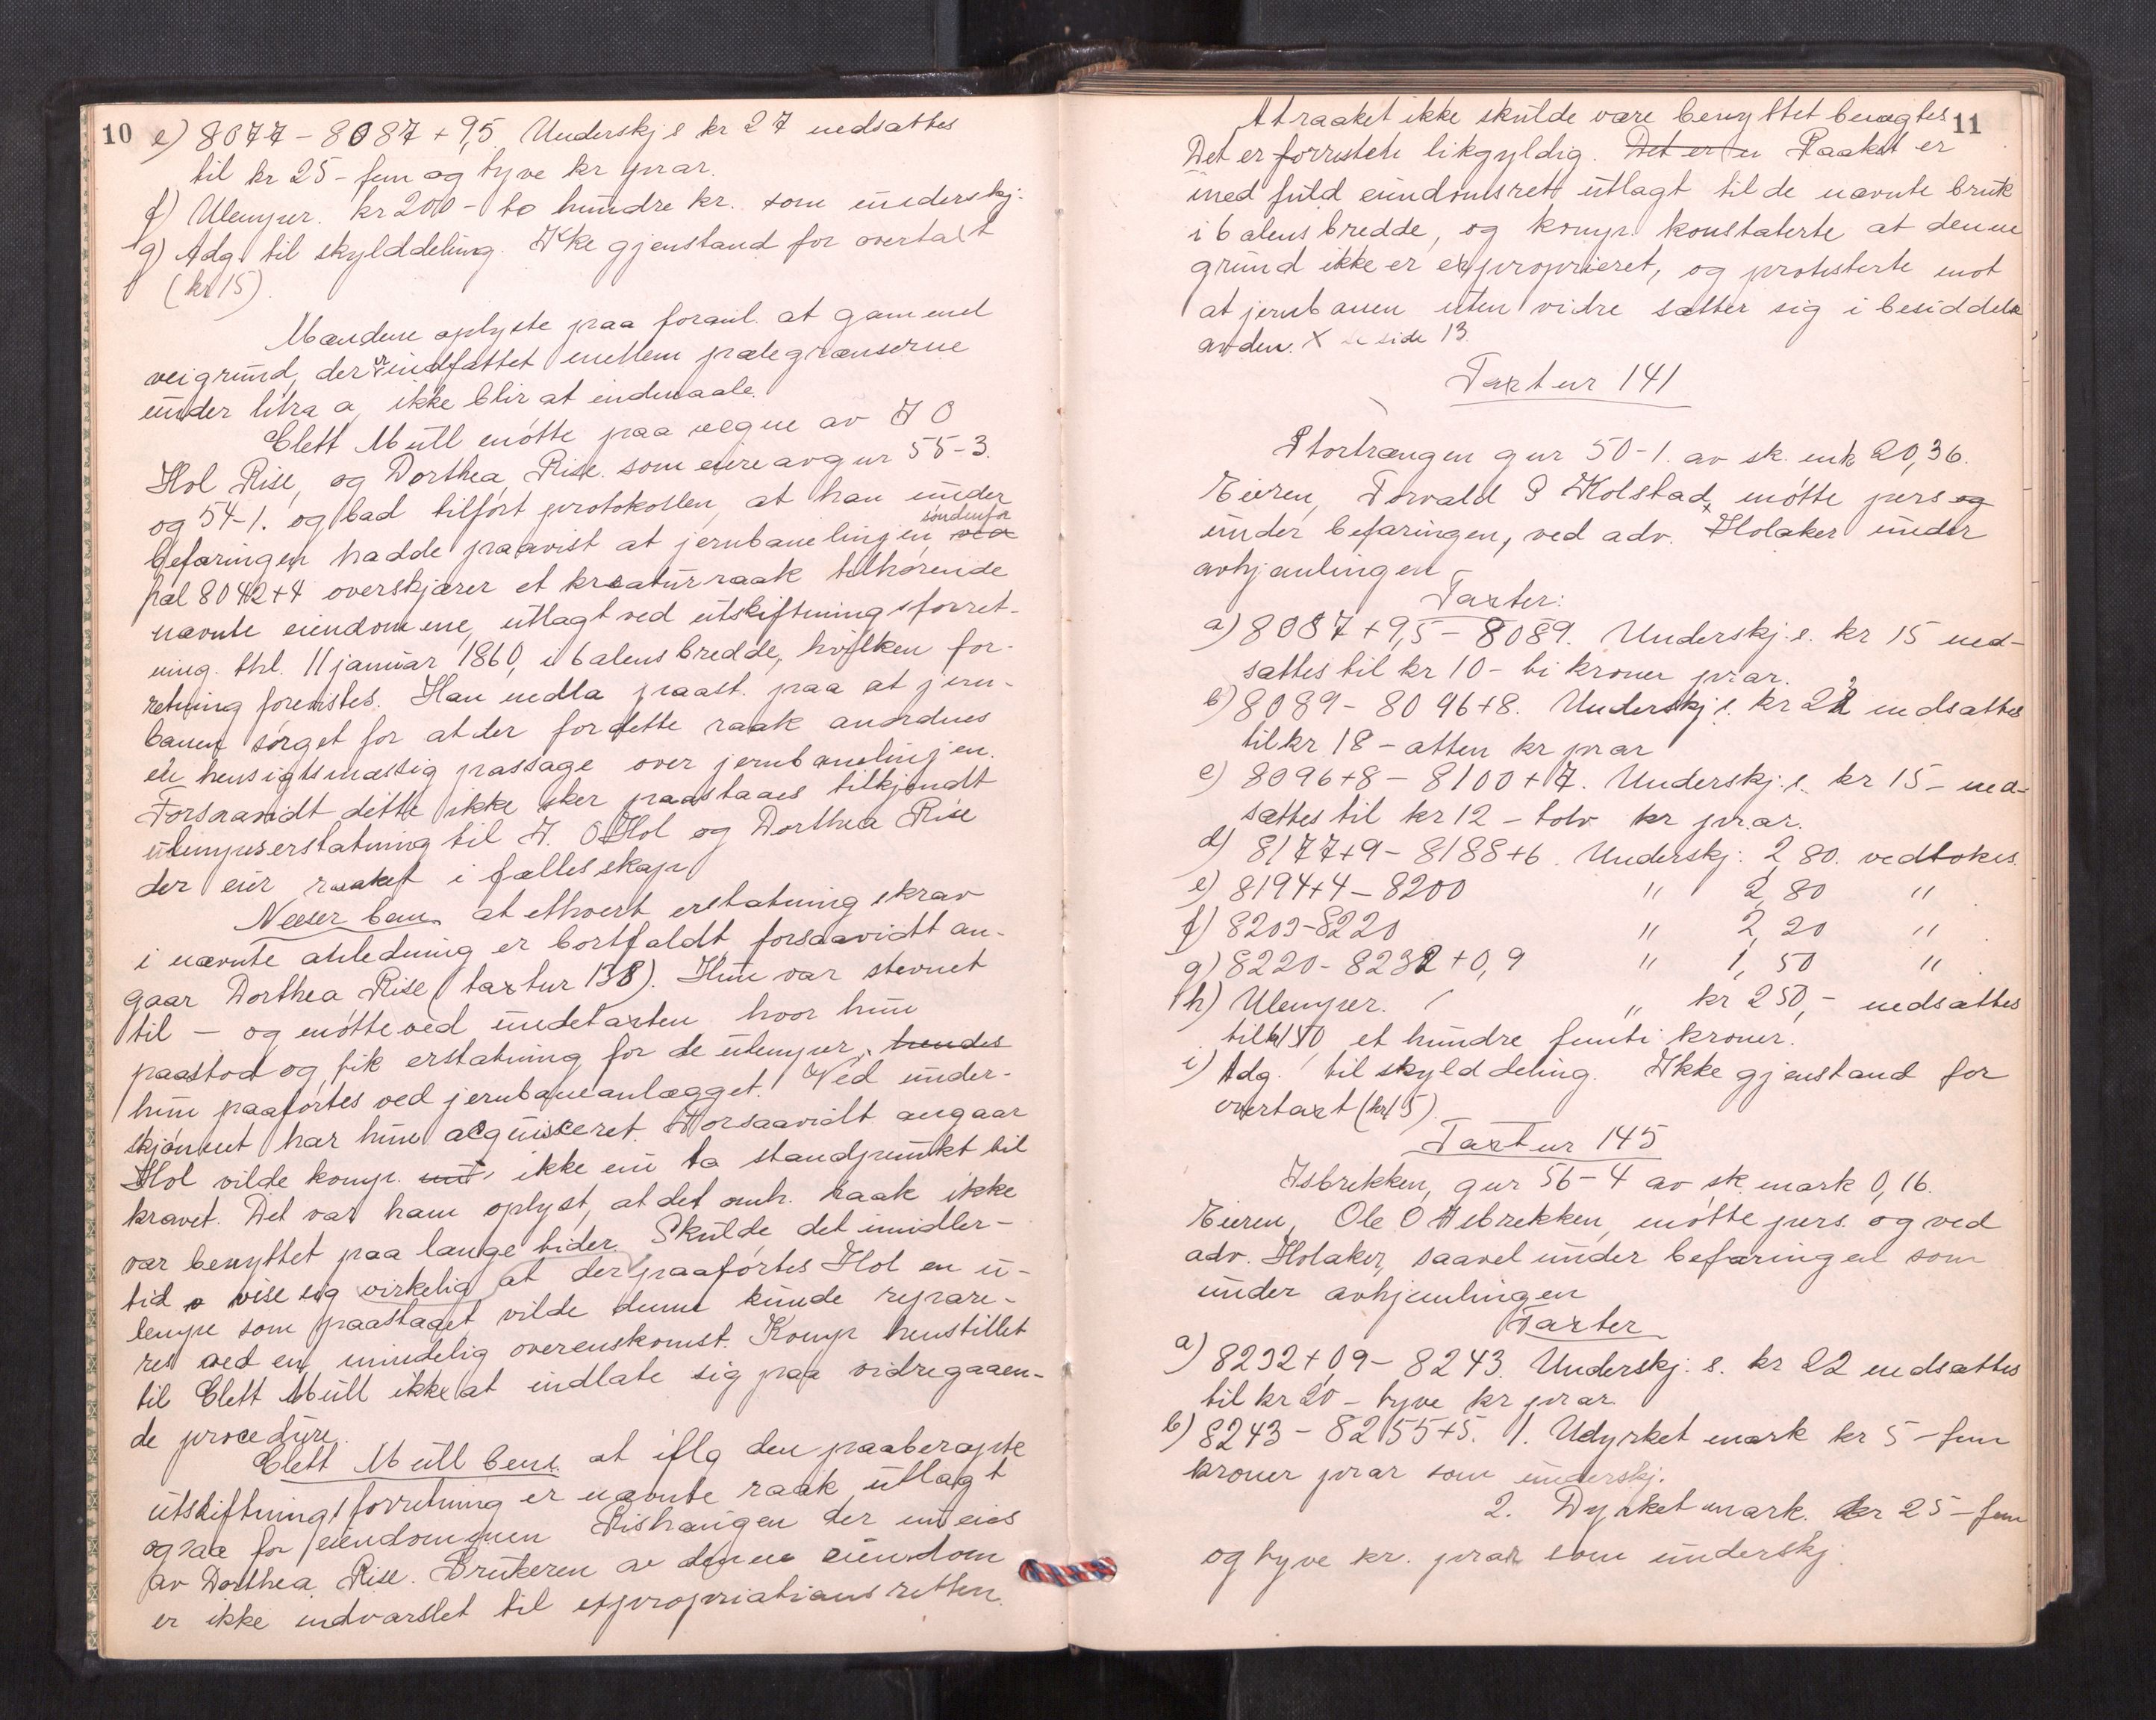 10
e) 8077 - 8087 + 9,5 Underskj s kr 27 nedsattes
til kr 25 - fem og tyve kr pr ar.
f) Ulemper. kr 200 - to hundre kr. som underskj:
g) Adg. til skylddeling. Ikke gjenstand for overtaxt
(kr 15).
Mændene oplyste paa foranl. at gammel
veigrund, der er indfattet mellem pælegrænserne
under litra a, ikke blir at indmaale.
Elett Müll møtte paa vegne av I O
Hol Rise, og Dorthea Rise som eiere av gnr 55-3.
og 54-1. og bad tilført protokollen, at han under
befaringen hadde paavist at jernbanelinjen, ved søndenfor
pæl 8042+4 overskjærer et kreaturraak tilhørende
nævnte eiendomme, utlagt ved utskiftningsforret-
ning. thl. 11 januar 1860, i 6 alens bredde, hvilken for-
retning forevistes. Han nedla paast. paa at jern-
banen sørget for at der for dette raak anordnes
en hensigtsmæssig passage over jernbanelinjen.
Forsaavidt dette ikke sker paastaaes tilkjendt
ulempeerstatning til I. O Hol og Dorthea Rise
der eier raaket i fællesskap
Neeser bem. at ethvert erstatningskrav
i nævnte anledning er bortfaldt forsaavidt an-
gaar Dorthea Rise (taxtnr 138). Hun var stevnet
til - og møtte ved undertaxten hvor hun
paastod og fik erstatning for de ulemper, hendes
hun paaførtes ved jernbaneanlægget. Ved under-
skjønnet har hun acquisceret. Forsaavidt angaar
Hol vilde komp. ikke nu ta standpunkt til
kravet. Det var ham oplyst, at det omh. raak ikke
var benyttet paa lange tider. Skulde det imidler-
tid vise sig virkelig at der paaførtes Hol en u-
lempe som paastaaet vilde denne kunde repare-
res ved en mindelig overenskomst. Komp henstillet
til Elett Müll ikke at indlate sig paa vidregaaen-
de procedure.
Elett Müll bem. at iflg den paaberopte
utskiftningsforretning er nævnte raak utlagt
ogsaa for eiendommen Rishaugen der nu eies
av Dorthea Rise. Brukeren av denne eiendom
er ikke indvarslet til expropriationsretten.
11
At raaket ikke skulde være benyttet benegtes
Det er forresten likgyldig. Det er en Raaket er
med fuld eiendomsrett utlagt til de nævnte bruk
i 6 alens bredde, og komp. konstaterte at denne
grund ikke er exproprieret, og protesterte mot
at jernbanen uten vidre sætter sig i besiddelse
av den. X se side 13.
Taxtnr 141
Stortrængen gnr 50-1. av sk. mk 20,36.
Eieren, Torvald P Kolstad, møtte pers og
under befaringen, ved adv. Holaker under
avhjemlingen
Taxter:
a) 8087+9,5 - 8089. Underskj. s. kr 15 ned-
sattes til kr 10 - ti kroner pr ar.
b) 8089 - 8096+8. Underskj s. kr 22 nedsattes
til kr 18 - atten kr pr ar
c) 8096+8 - 8100+7. Underskj. s. kr 15 - ned-
sættes til kr 12 - tolv kr pr. ar.
d) 8177+9 - 8188+6. Underskj: 2,80. vedtokes.
e) 8194+4 - 8200 " 2,80 "
f) 8203 - 8220 " 2,20 "
g) 8220 - 8232+0,9 " 1,50 "
h) Ulemper. " kr 250,- nedsattes
til kr 150 et hundre femti kroner.
i) Adg. til skylddeling. Ikke gjenstand for
overtaxt (kr 15).
Taxtnr 145
Isbrekken, gnr 56-4 av sk. mark 0,16.
Eieren, Ole O Isbrekken, møtte pers. og ved
adv. Holaker, saavel under befaringen som
under avhjemlingen
Taxter
a) 8232+0,9 - 8243. Underskj. s. kr 22 nedsattes
til kr 20 - tyve kr pr ar.
b) 8243 - 8255+5. 1. Udyrket mark kr 5 - fem
kroner pr ar som underskj.
2. Dyrket mark. kr 25 - fem
og tyve kr. pr ar som underskj.